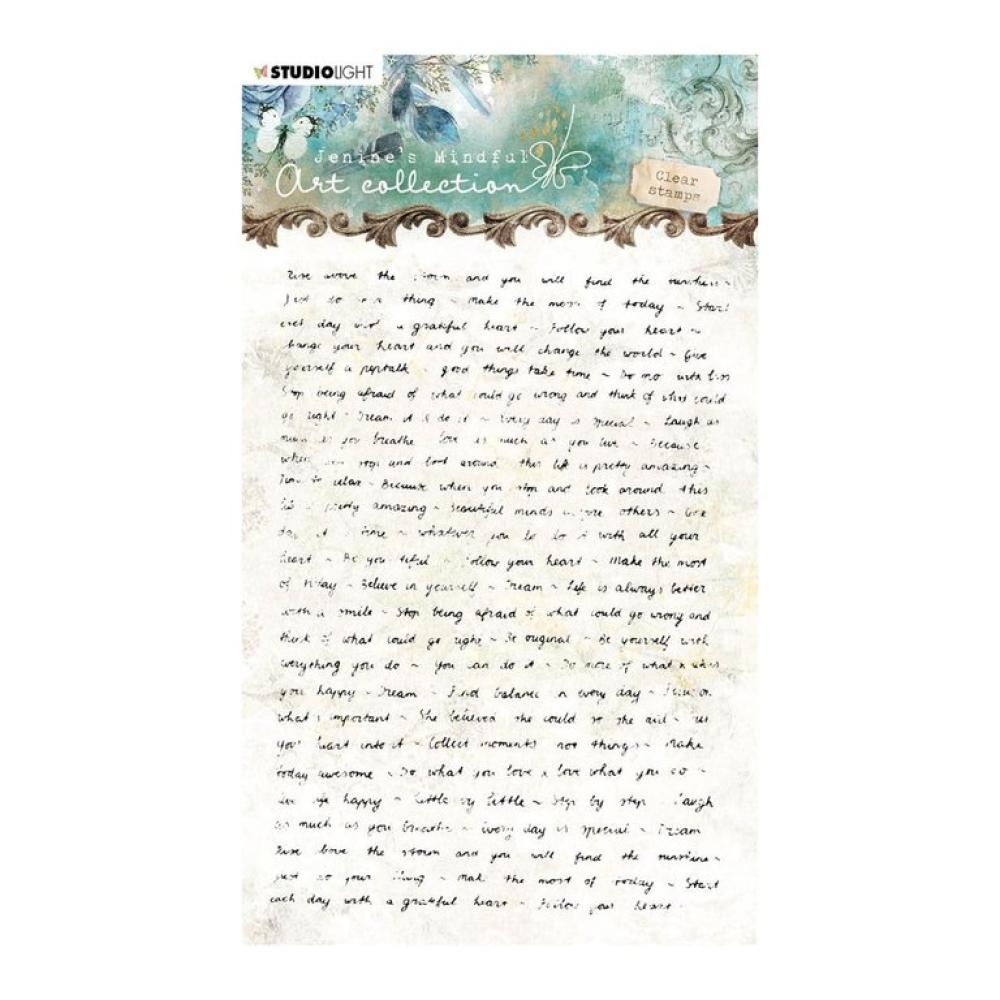 STUDIOLIGHT
Jenine's Mindful
Art collection
Clear
stamps
Rise above the storm and you will find the sunshine ~
Just do your thing ~ Make the most of today ~ Start
day a grateful heart ~ Follow your heart ~
your heart and you will change the world ~ Give
yourself a peptalk ~ good things take time ~ Do more with less
Stop being afraid of what could go wrong and think of what could
go right ~ Dream it & do it ~ Every day is special ~ Laugh as
much as you breathe love as much as you live ~ Because
when you stop and look around this life is pretty amazing ~
Time to relax ~ Because when you stop and look around this
life is pretty amazing ~ Beautiful minds inspire others ~ One
day at a time ~ whatever you do do it with all your
heart ~ Be you tiful ~ Follow your heart ~ Make the most
of today ~ Believe in yourself ~ Dream ~ Life is always better
with a smile ~ Stop being afraid of what could go wrong and
think of what could go right ~ Be original ~ Be yourself with
everything you do ~ You can do it ~ Do more of what makes
you happy ~ Dream ~ Find balance in every day ~ Focus on
what's important ~ She believed she could so she did ~
your heart into it ~ Collect moments not things ~ Make
today awesome ~ Do what you love & love what you do ~
Live life happy ~ Little by little ~ Step by step ~ Laugh
as much as you breathe ~ Every day is special ~ Dream
Rise bove the storm and you will find the sunshine ~
Just do your thing ~ Mak the most of today ~ Start
each day with a grateful heart ~ Follow your heart